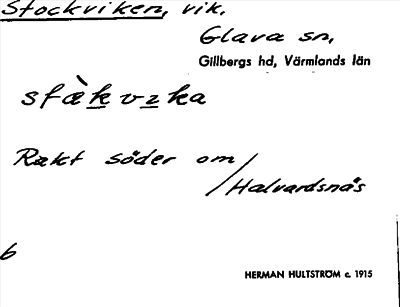 Stockviken, vik.
Glava sn,
Gillbergs hd, Värmlands län
Rakt söder om
/Halvardsnäs
6
HERMAN HULTSTRÖM c. 1915